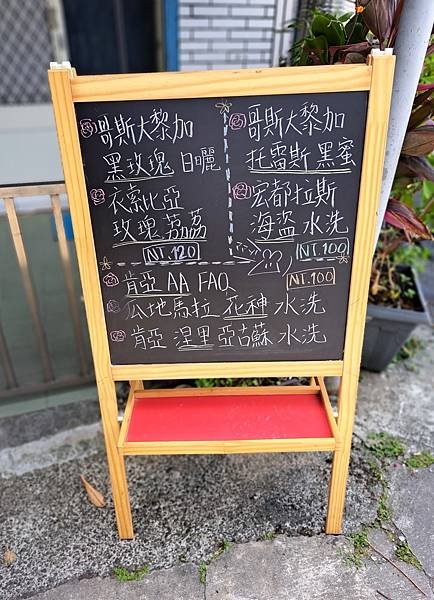 哥斯大黎加
黑玫瑰 日曬
衣索比亞
玫瑰荔荔
NT.120
哥斯大黎加
托雷斯 黑蜜
宏都拉斯
海盜 水洗
NT.100
肯亞 AA FAQ
NT.100
瓜地馬拉 花神 水洗
肯亞 涅里 亞古蘇 水洗